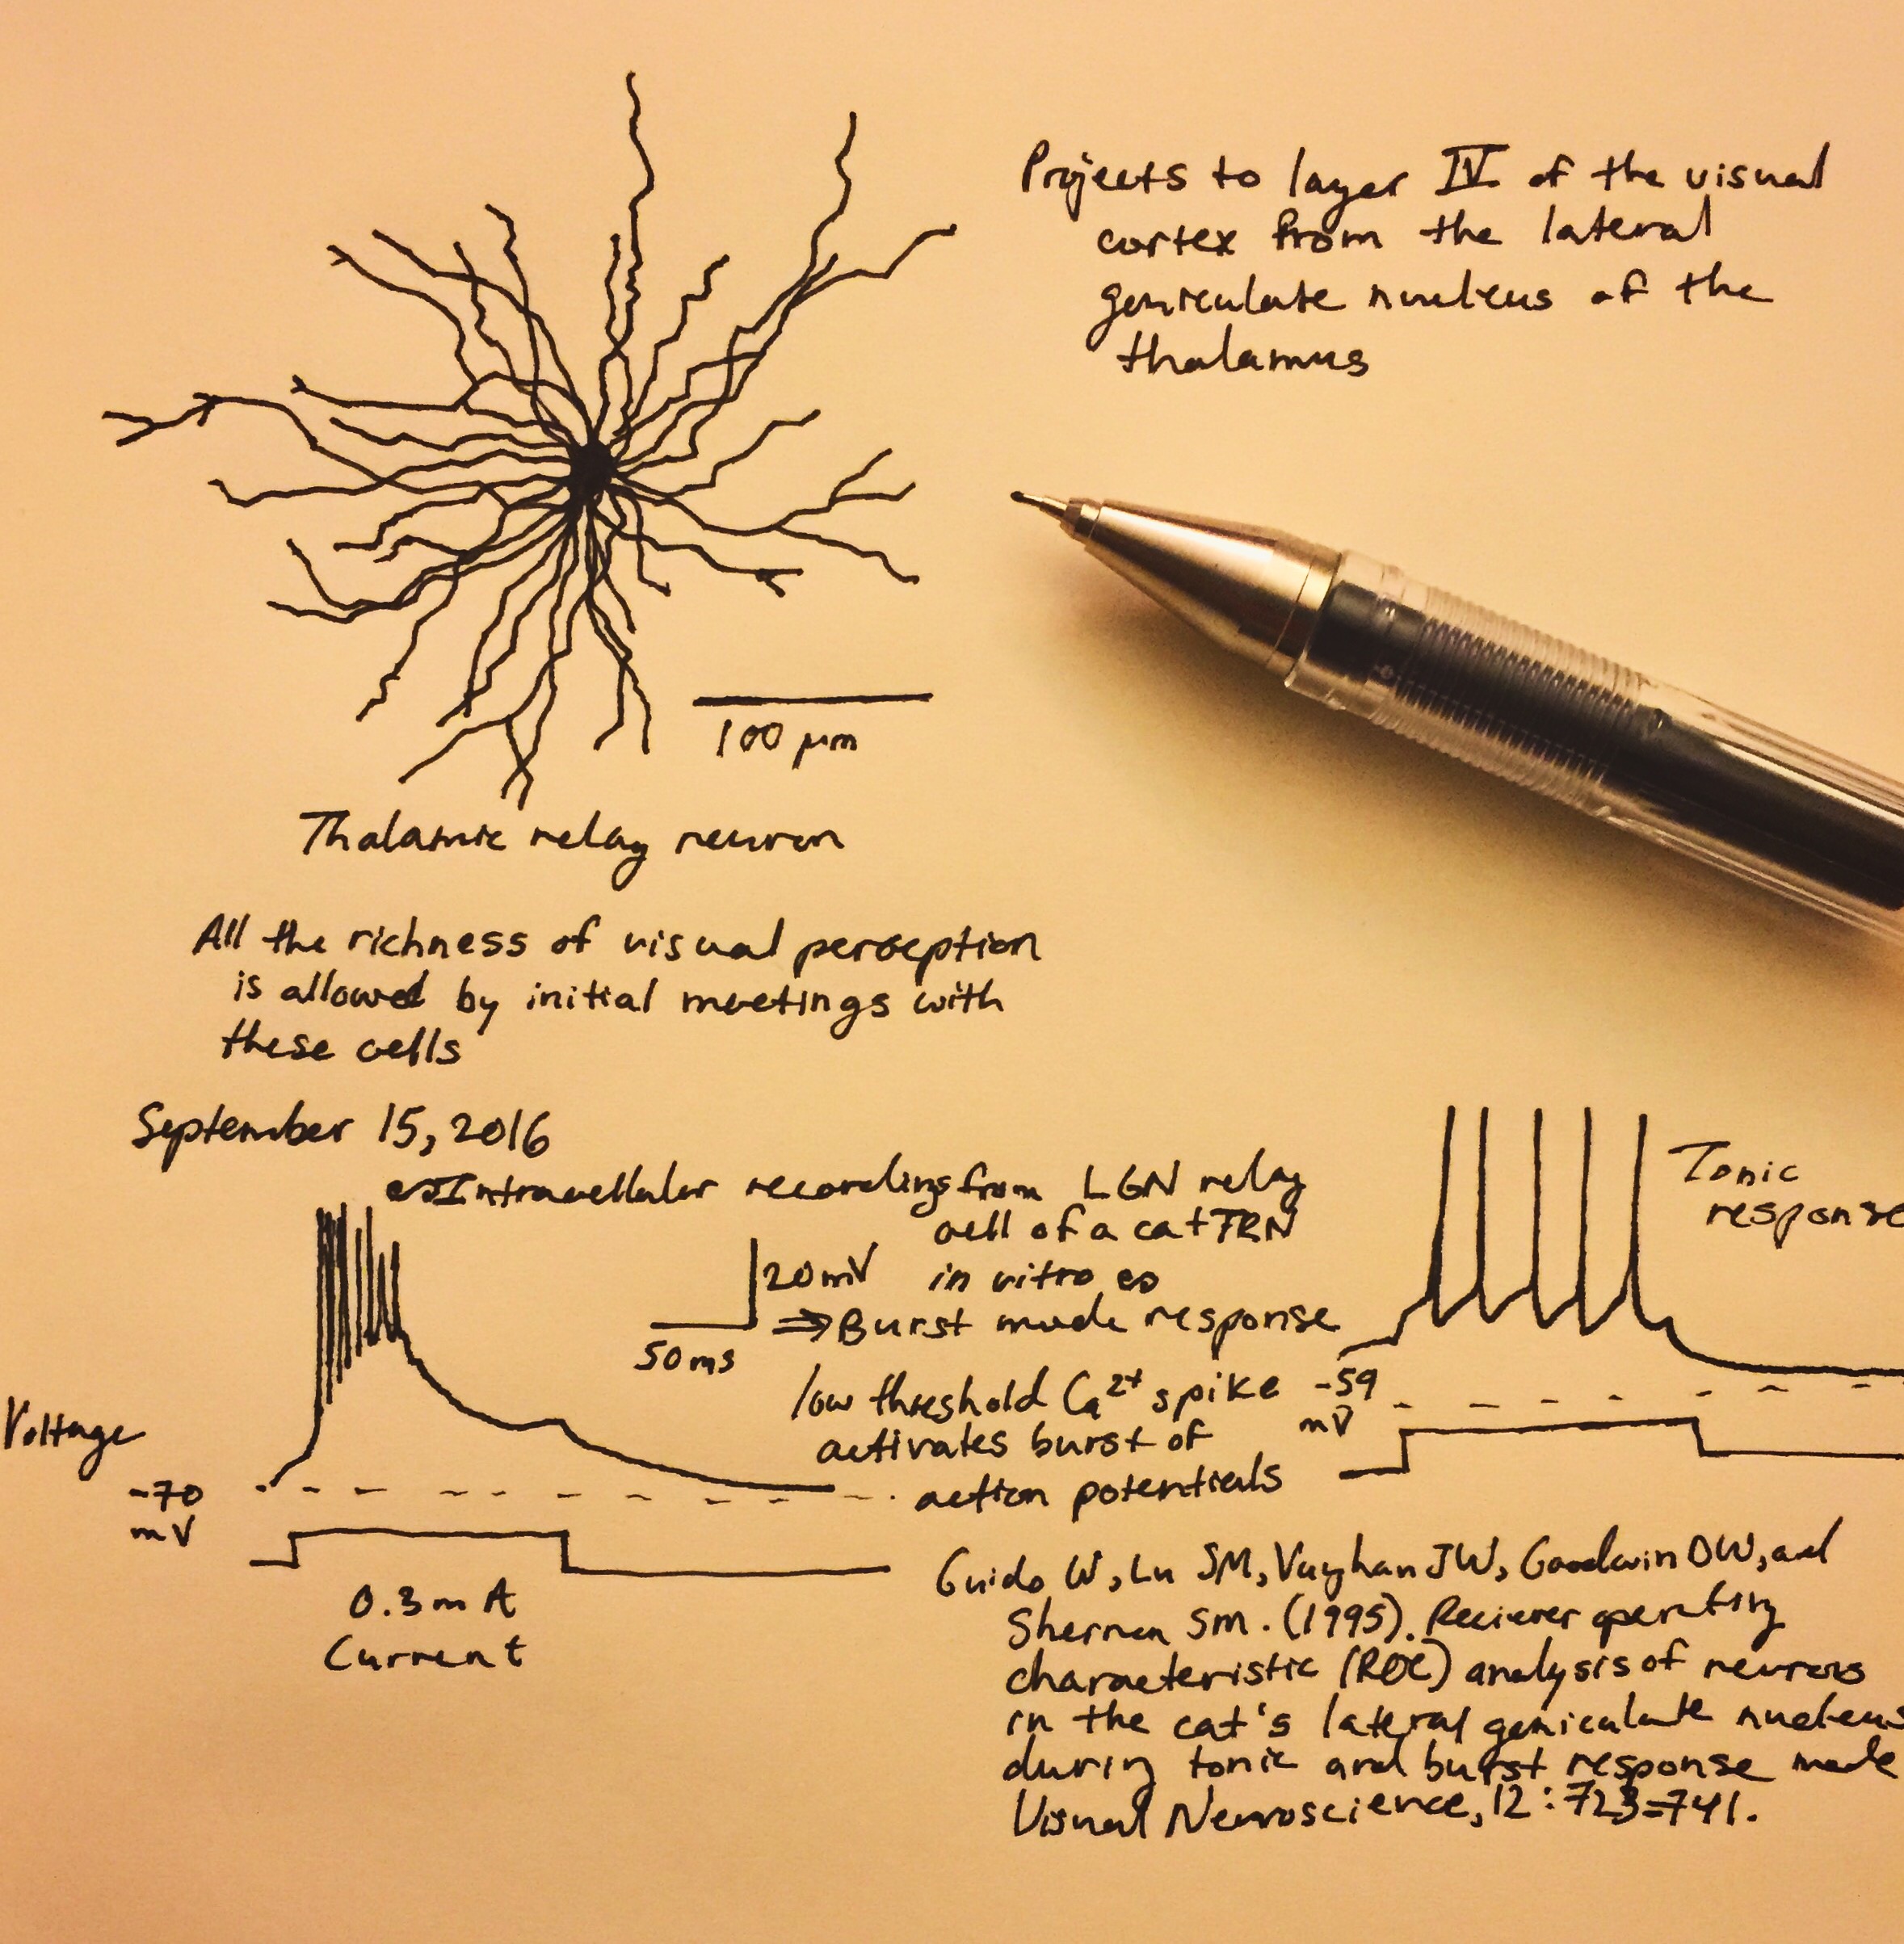 Projects to layer IV of the visual
cortex from the lateral
geniculate nucleus of the
thalamus
100 μm
Thalamic relay neuron
All the richness of visual perception
is allowed by initial meetings with
these cells
September 15, 2016
Intracellular recordings from LGN relay
cell of a cat TRN
in vitro
20mV
50ms
⇒ Burst mode response
low threshold Ca²⁺ spike
activates burst of
action potentials
Voltage
-70
mV
0.3mA
Current
Tonic
response
-59
mV
Guido W, Lu SM, Vaughan JW, Goodwin DW, and
Sherman SM. (1995). Reciever operating
characteristic (ROC) analysis of neurons
in the cat's lateral geniculate nucleus
during tonic and burst response mode
Visual Neuroscience, 12:723-741.